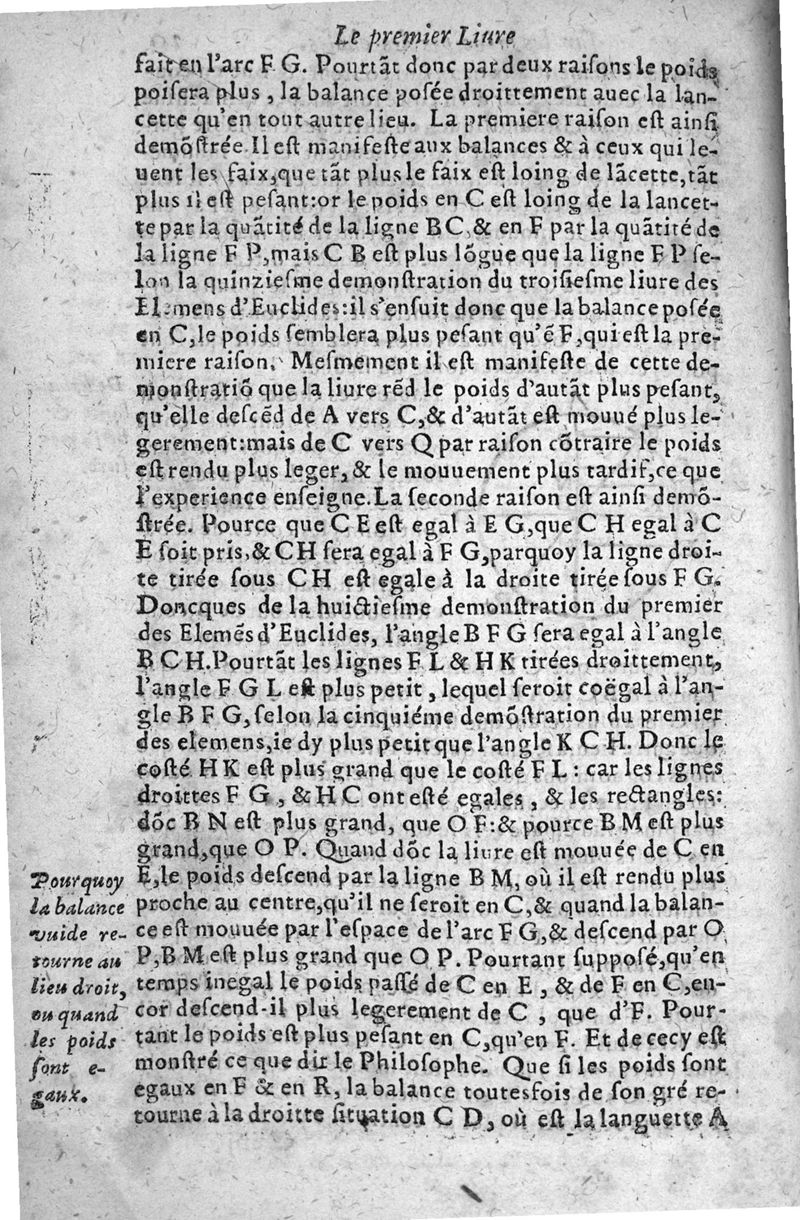 Le premier Liure
fait en l'arc F G. Pourtãt donc par deux raisons le poids
poisera plus, la balance posée droittement auec la lan-
cette qu'en tout autre lieu. La premiere raison est ainsi
demõstrée. Il est manifeste aux balances & à ceux qui le-
uent les faix, que tãt plus le faix est loing de lãcette, tãt
plus il est pesant: or le poids en C est loing de la lancet-
te par la quãtité de la ligne B C, & en F par la quãtité de
la ligne F P, mais C B est plus lõgue que la ligne F P se-
lon la quinziesme demonstration du troisiesme liure des
Elemens d'Euclides: il s'ensuit donc que la balance posée
en C, le poids semblera plus pesant qu'ẽ F, qui est la pre-
miere raison. Mesmement il est manifeste de cette de-
monstratiõ que la liure rẽd le poids d'autãt plus pesant,
qu'elle descẽd de A vers C, & d'autãt est mouué plus le-
gerement: mais de C vers Q par raison cõtraire le poids
est rendu plus leger, & le mouuement plus tardif, ce que
l'experience enseigne. La seconde raison est ainsi demõ-
strée. Pource que C E est egal à E G, que C H egal à C
E soit pris, & C H sera egal à F G, parquoy la ligne droi-
te tirée sous C H est egale à la droite tirée sous F G.
Doncques de la huictiesme demonstration du premier
des Elemẽs d'Euclides, l'angle B F G sera egal à l'angle
B C H. Pourtãt les lignes F L & H K tirées droittement,
l'angle F G L est plus petit, lequel seroit coëgal à l'an-
gle B F G, selon la cinquiéme demõstration du premier
des elemens, ie dy plus petit que l'angle K C H. Donc le
costé H K est plus grand que le costé F L: car les lignes
droittes F G, & H C ont esté egales, & les rectangles:
dõc B N est plus grand, que O F: & pource B M est plus
grand, que O P. Quand dõc la liure est mouuée de C en
E, le poids descend par la ligne B M, où il est rendu plus
proche au centre, qu'il ne seroit en C, & quand la balan-
ce est mouuée par l'espace de l'arc F G, & descend par O
P, B M est plus grand que O P. Pourtant supposé, qu'en
temps inegal le poids passé de C en E, & de F en C, en-
cor descend-il plus legerement de C, que d'F. Pour-
tant le poids est plus pesant en C, qu'en F. Et de cecy est
monstré ce que dit le Philosophe. Que si les poids sont
egaux en F & en R, la balance toutesfois de son gré re-
tourne à la droitte situation C D, où est la languette A
Pourquoy
la balance
vuide re-
tourne au
lieu droit,
ou quand
les poids
sont e-
gaux.